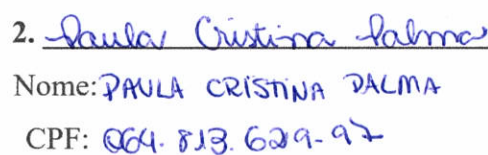 2. Paula Cristina Dalma
Nome: PAULA CRISTINA DALMA
CPF: 064.813.629-97